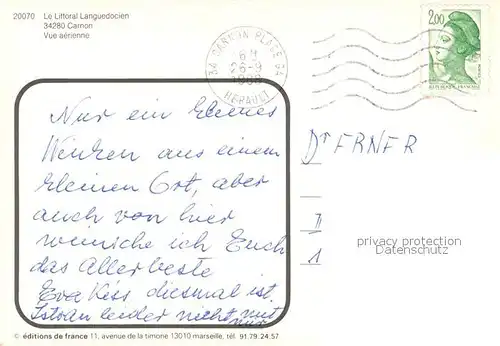 20070 Le Littoral Languedocien
34280 Carnon
Vue aérienne
34 CARNON PLAGE 34
26-9
HERAULT
2,00
Nur ein kleines
Winken aus einem
kleinen Ort, aber
auch von hier
wünsche ich Euch
das Allerbeste
Eva Kiss diesmal ist
Istvan leider nicht mit
mir
Dr ERNER
1
privacy protection
Datenschutz
© éditions de france 11, avenue de la timone 13010 marseille, tél. 91.79.24.57